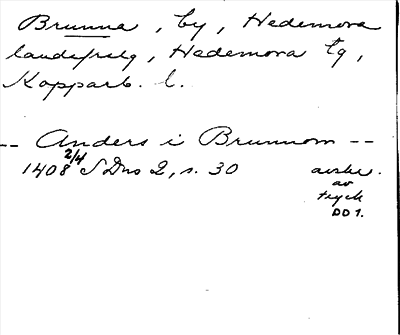 Brunna, by, Hedemora
landsfrslg, Hedemora tg,
Kopparb. l.
-- Anders i Brunnom --
1408 2/4 SDns 2, s. 30 avskr.
av
tryck
DD 1.